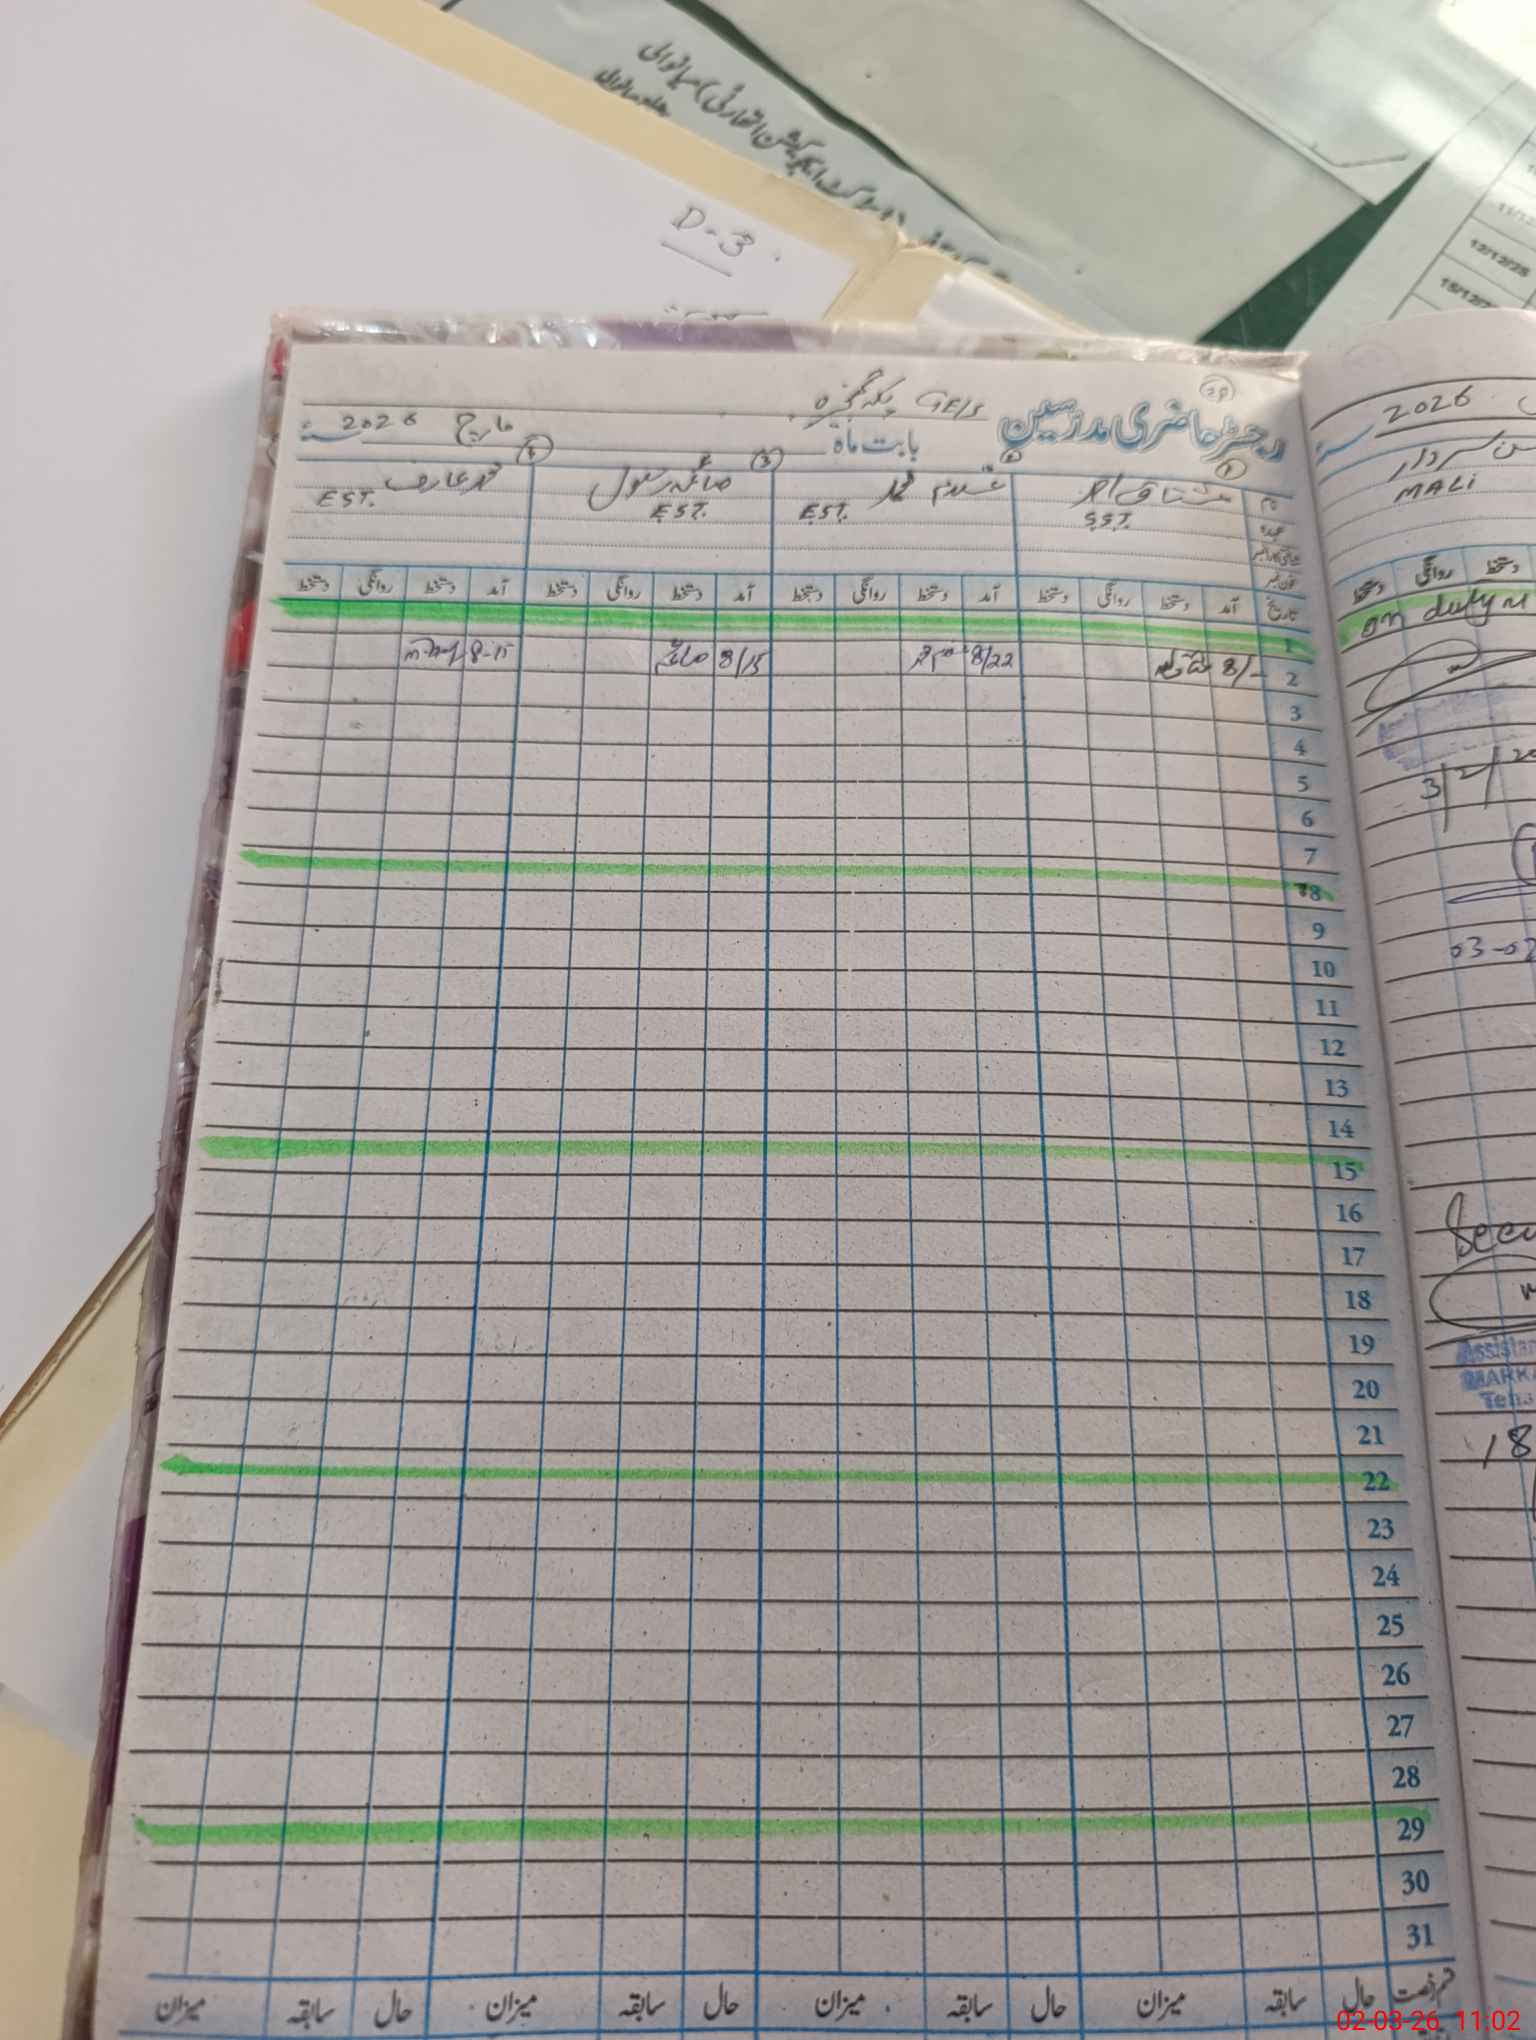 ایجوکیشن اتھارٹی میانوالی
D-3
رجسٹر حاضری مدرسین
GE/S
بابت ماہ مارچ 2026
نام مشتاق احمد غلام محمد صائمہ رسول محمد عارف
عہدہ S.S.T. E.S.T. E.S.T. E.S.T.
تاریخ آمد دستخط روانگی دستخط آمد دستخط روانگی دستخط آمد دستخط روانگی دستخط آمد دستخط روانگی دستخط
1
2 8/- 8/22 8/15 صائمہ 8-15
3
4
5
6
7
8
9
10
11
12
13
14
15
16
17
18
19
20
21
22
23
24
25
26
27
28
29
30
31
قسم رخصت حال سابقہ میزان حال سابقہ میزان حال سابقہ میزان حال سابقہ میزان
2026
MALI
روانگی دستخط
on duty
3/2/20
03-02
18
12/12/25
02-03-26 11:02